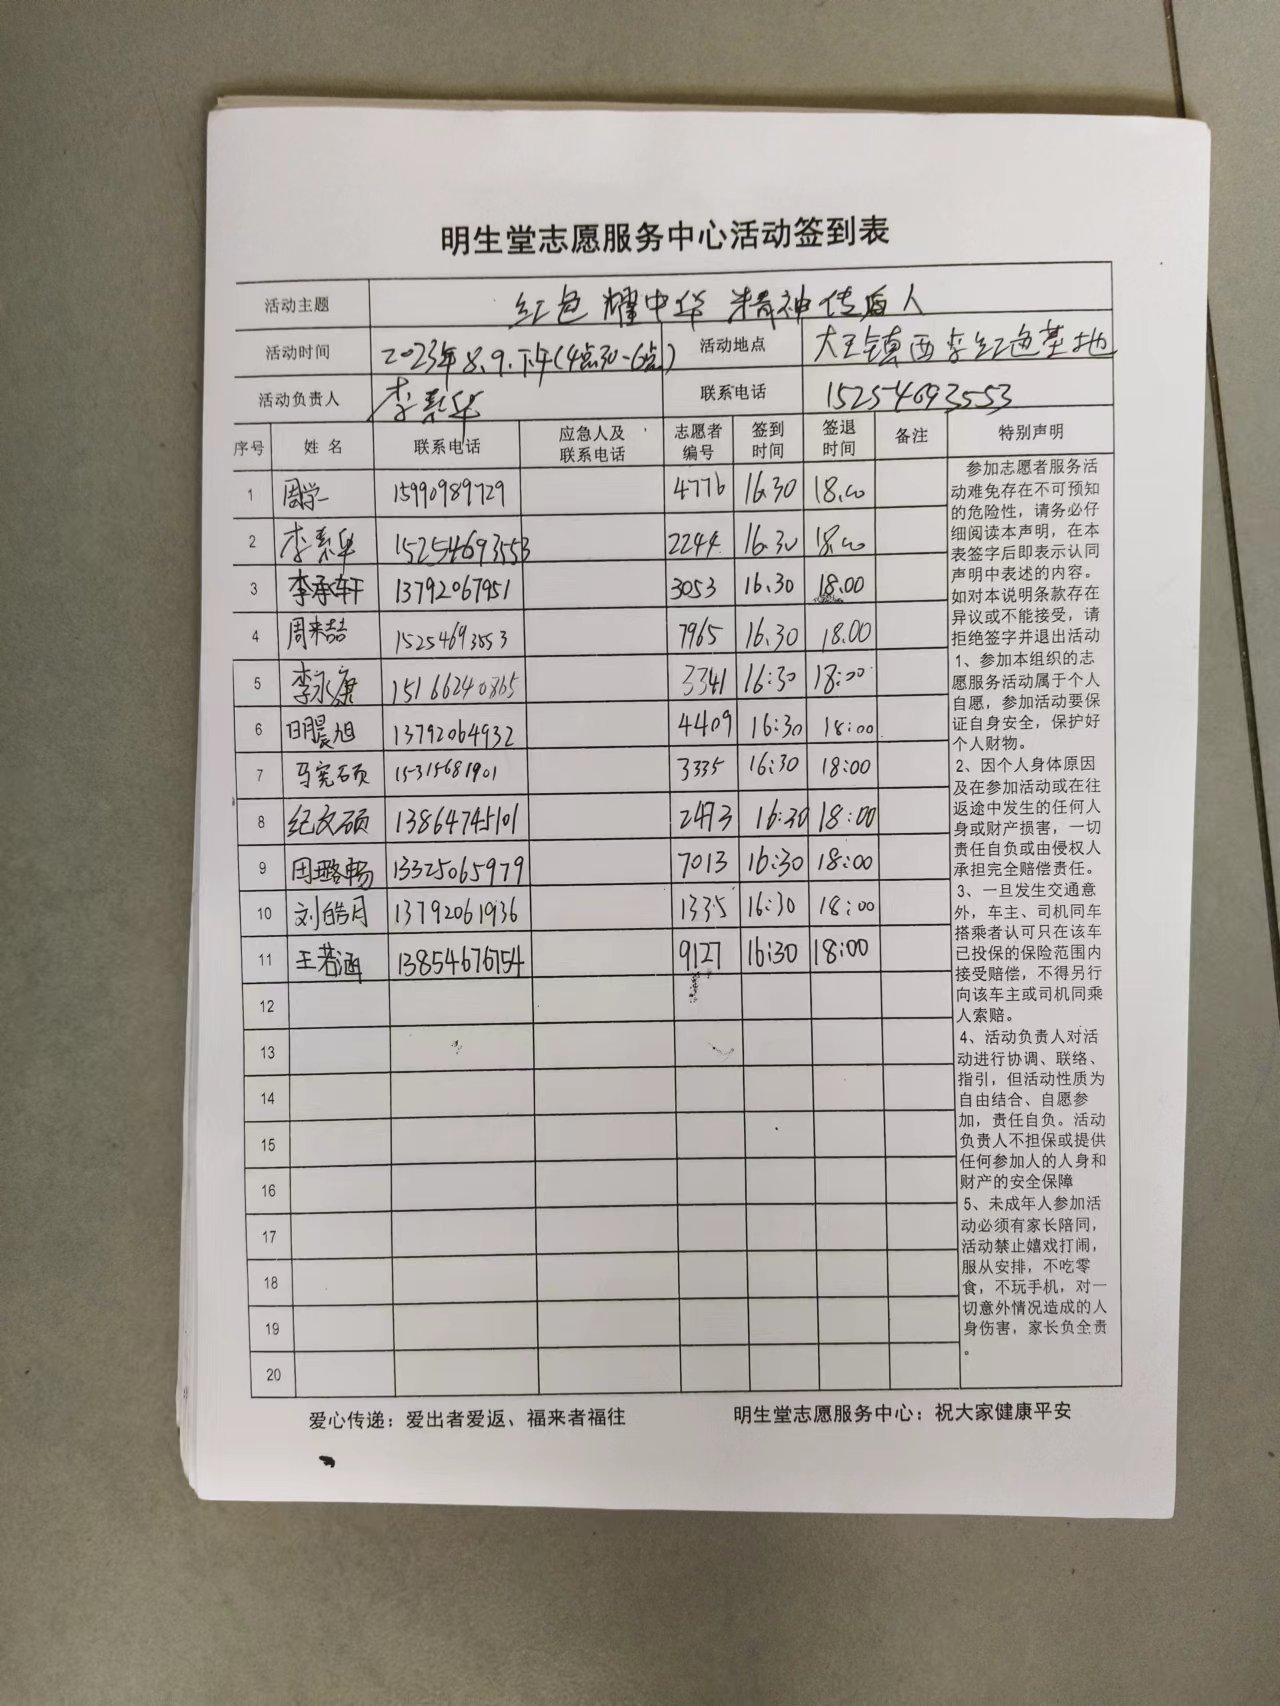 明生堂志愿服务中心活动签到表
活动主题 红色耀中华 精神传后人
活动时间 2023年8.9.下午(4点30-6点) 活动地点 大王镇西李红色基地
活动负责人 李素华 联系电话 15254693553
序号 姓名 联系电话 应急人及联系电话 志愿者编号 签到时间 签退时间 备注 特别声明
1 周学一 15990989729 4776 16.30 18.00
2 李素华 15254693553 2244 16.30 18.00
3 李承轩 13792067951 3053 16.30 18.00
4 周来喆 15254693553 7965 16.30 18.00
5 李永康 15166240865 3341 16:30 18:00
6 明晨旭 13792064932 4409 16:30 18:00
7 马宪硕 15315681901 3335 16:30 18:00
8 纪文硕 13864745101 2473 16:30 18:00
9 田璐畅 13325065979 7013 16:30 18:00
10 刘皓月 13792061936 1335 16:30 18:00
11 王若涵 13854676754 9127 16:30 18:00
12
13
14
15
16
17
18
19
20
参加志愿者服务活
动难免存在不可预知
的危险性，请务必仔
细阅读本声明，在本
表签字后即表示认同
声明中表述的内容。
如对本说明条款存在
异议或不能接受，请
拒绝签字并退出活动
1、参加本组织的志
愿服务活动属于个人
自愿，参加活动要保
证自身安全，保护好
个人财物。
2、因个人身体原因
及在参加活动或在往
返途中发生的任何人
身或财产损害，一切
责任自负或由侵权人
承担完全赔偿责任。
3、一旦发生交通意
外，车主、司机同车
搭乘者认可只在该车
已投保的保险范围内
接受赔偿，不得另行
向该车主或司机同乘
人索赔。
4、活动负责人对活
动进行协调、联络、
指引，但活动性质为
自由结合、自愿参
加，责任自负。活动
负责人不担保或提供
任何参加人的人身和
财产的安全保障
5、未成年人参加活
动必须有家长陪同，
活动禁止嬉戏打闹，
服从安排，不吃零
食，不玩手机，对一
切意外情况造成的人
身伤害，家长负全责
。
爱心传递：爱出者爱返、福来者福往 明生堂志愿服务中心：祝大家健康平安